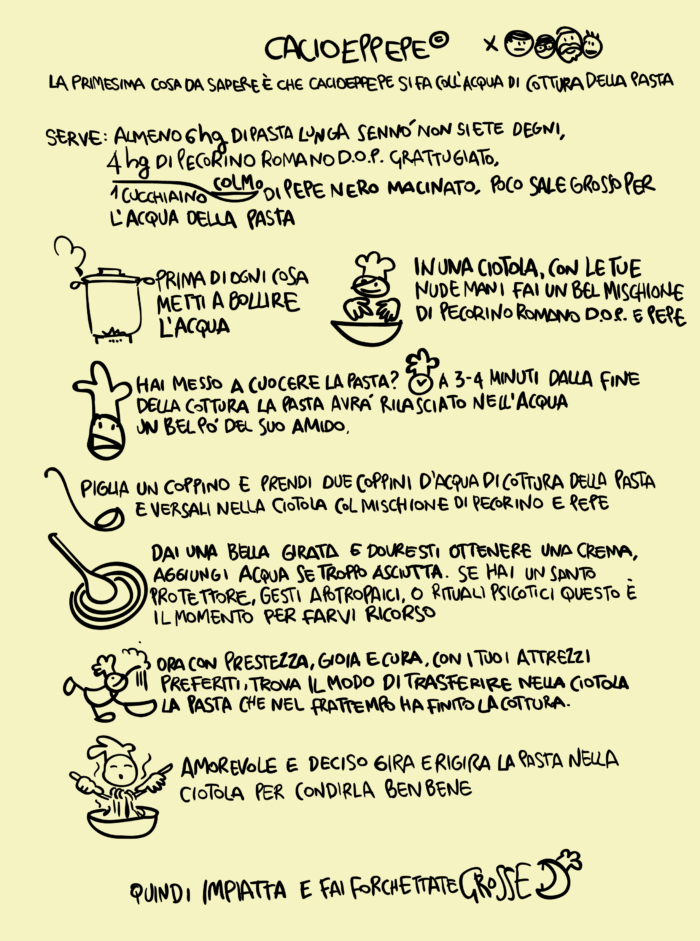 CACIOEPPEPE© X
LA PRIMESIMA COSA DA SAPERE È CHE CACIOEPPEPE SI FA COLL'ACQUA DI COTTURA DELLA PASTA
SERVE: ALMENO 6hg DI PASTA LUNGA SENNÒ NON SIETE DEGNI,
4 hg DI PECORINO ROMANO D.O.P. GRATTUGIATO,
1 CUCCHIAINO COLMO DI PEPE NERO MACINATO, POCO SALE GROSSO PER
L'ACQUA DELLA PASTA
PRIMA DI OGNI COSA
METTI A BOLLIRE
L'ACQUA
IN UNA CIOTOLA, CON LE TUE
NUDE MANI FAI UN BEL MISCHIONE
DI PECORINO ROMANO D.O.P. E PEPE
HAI MESSO A CUOCERE LA PASTA? A 3-4 MINUTI DALLA FINE
DELLA COTTURA LA PASTA AVRA' RILASCIATO NELL'ACQUA
UN BEL PO' DEL SUO AMIDO.
PIGLIA UN COPPINO E PRENDI DUE COPPINI D'ACQUA DI COTTURA DELLA PASTA
E VERSALI NELLA CIOTOLA COL MISCHIONE DI PECORINO E PEPE
DAI UNA BELLA GIRATA E DOVRESTI OTTENERE UNA CREMA,
AGGIUNGI ACQUA SE TROPPO ASCIUTTA. SE HAI UN SANTO
PROTETTORE, GESTI ABTROPAICI, O RITUALI PSICOTICI QUESTO È
IL MOMENTO PER FARVI RICORSO
ORA CON PRESTEZZA, GIOIA E CURA, CON I TUOI ATTREZZI
PREFERITI, TROVA IL MODO DI TRASFERIRE NELLA CIOTOLA
LA PASTA CHE NEL FRATTEMPO HA FINITO LA COTTURA.
AMOREVOLE E DECISO GIRA E RIGIRA LA PASTA NELLA
CIOTOLA PER CONDIRLA BEN BENE
QUINDI IMPIATTA E FAI FORCHETTATE GROSSE